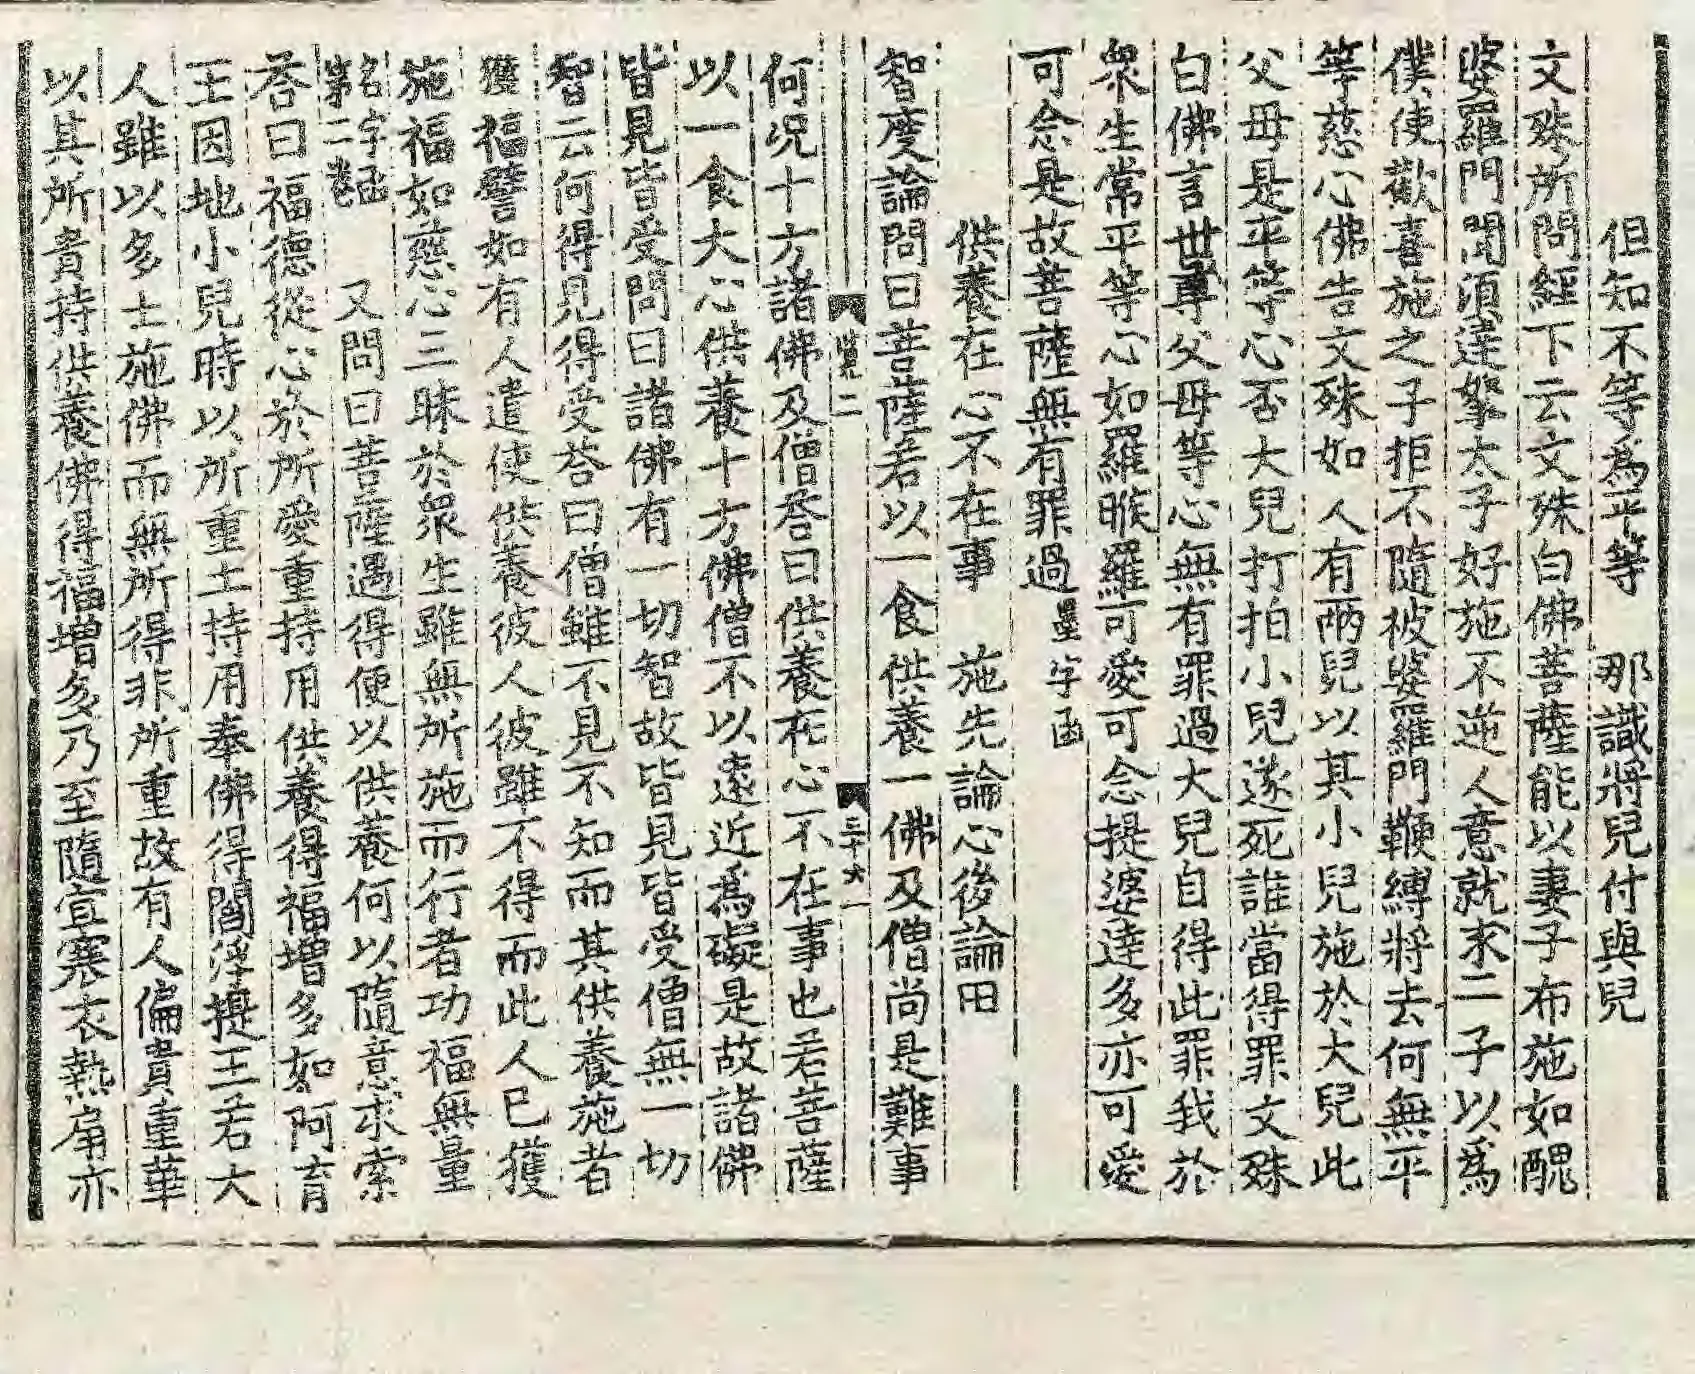 但知不等為平等　那識將兒付與兒
文殊所問經下云文殊白佛菩薩能以妻子布施如醜
婆羅門聞須達拏太子好施不逆人意就求二子以為
僕使歡喜施之子拒不隨彼婆羅門鞭縛將去何無平
等慈心佛告文殊如人有兩兒以其小兒施於大兒此
父母是平等心否大兒打拍小兒遂死誰當得罪文殊
白佛言世尊父母等心無有罪過大兒自得此罪我於
衆生常平等心如羅睺羅可愛可念提婆達多亦可愛
可念是故菩薩無有罪過 墨字函
供養在心不在事　施先論心後論田
智度論問曰菩薩若以一食供養一佛及僧尚是難事
覽二　三十六
何况十方諸佛及僧荅曰供養在心不在事也若菩薩
以一食大心供養十方佛僧不以遠近為礙是故諸佛
皆見皆受問曰諸佛有一切智故皆見皆受僧無一切
智云何得見得受荅曰僧雖不見不知而其供養施者
獲福譬如有人遣使供養彼人彼雖不得而此人已獲
施福如慈心三昧於衆生雖無所施而行者功福無量
名字函第二卷　又問曰菩薩遇得便以供養何以隨意求索
荅曰福德從心於所愛重持用供養得福增多如阿育
王因地小兒時以所重土持用奉佛得閻浮提王若大
人雖以多土施佛而無所得非所重故有人偏貴重華
以其所貴持供養佛得福增多乃至隨宜寒衣熱扇亦